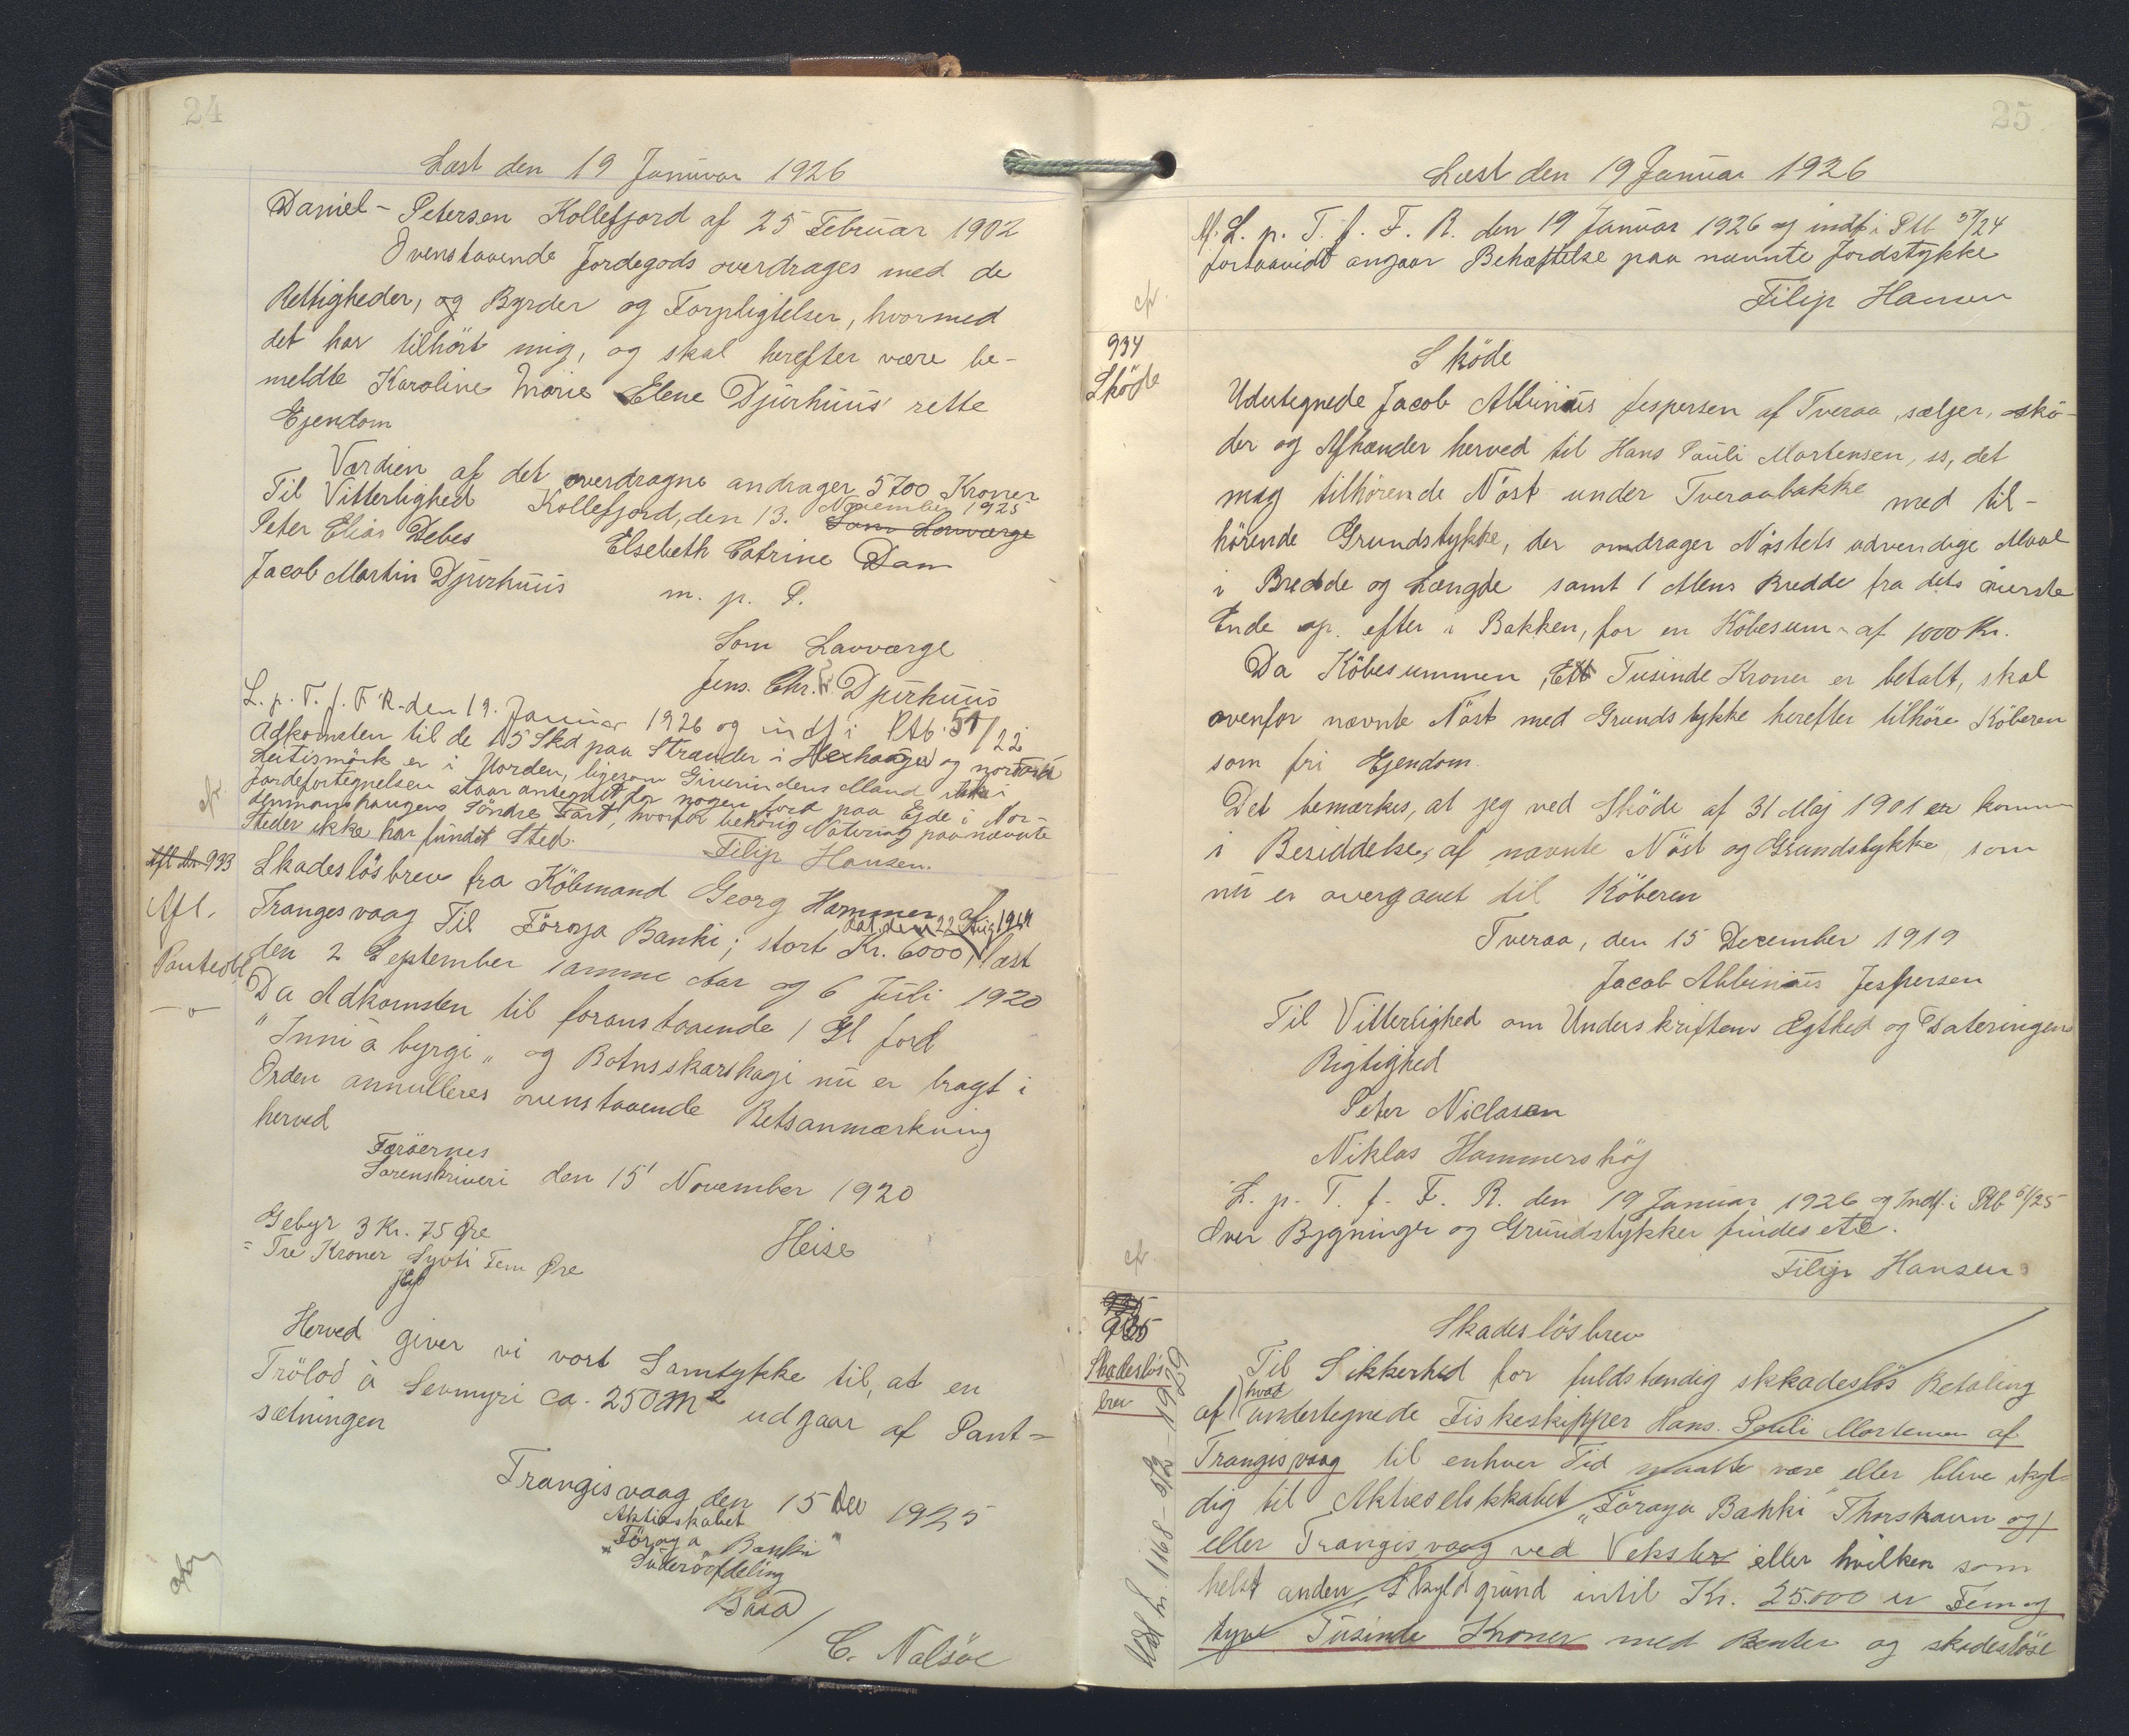 24
Læst den 19 Januar 1926
Daniel - Petersen Kollefjord af 25 Februar 1902
Ovenstaaende Jordegods overdrages med de
Rettigheder, og Byrder og Forpligtelser, hvormed
det har tilhört mig, og skal herefter være be-
meldte Karoline Marie Elene Djurhuus' rette
Ejendom
Værdien af det overdragne andrager 5700 Kroner
Til Vitterlighed Kollefjord, den 13. November 1925
Peter Elias Debes Som Lavværge
Elsebeth Catrine Dam
Jacob Martin Djurhuus m. p. P.
Som Lavværge
Jens. Chr. Djurhuus
L. p. T. f. F. R. den 19. Januar 1926 og indf i Ptb. 51/22
Adkomsten til de 15 Skd paa Strænder i og
er i Uorden, ligesom Giverindens Mand ikke i
Jordefortegnelsen staar antegnet for nogen Jord paa Ejde i Nor-
denmanshaugens Söndre Part, hvorfor behörig Notering paa nævnte
Steder ikke har fundet Sted.
Filip Hansen.
cfr.
Afl. Nr. 933
Afl.
Panteobl
-o-
Skadeslösbrev fra Köbmand Georg Hammer af
Trangesvaag Til Föroya Banki; stort Kr. 6000, dat. den 22 Aug 1919 læst
den 2 September samme Aar og 6 Juli 1920
Da Adkomsten til foranstaaende 1 Gl Jord
"Inni à byrgi" og Botnsskarshagi nu er bragt i
Orden annulleres ovenstaaende Retsanmærkning
herved
Færöernes
Sorenskriveri den 15' November 1920
Heise
Gebyr 3 Kr. 75 Øre
= Tre Kroner Syvti Fem Øre
Herved giver vi vort Samtykke til, at en
Trölod à Sevmyri ca. 250 m2 udgaar af Pant-
sætningen
Trangisvaag den 15 Dec 1925
Aktieskabet
"Föroya Banki"
Suderöafdeling
/ C. Nalsöe
25
Læst den 19 Januar 1926
Af. L. p. T. f. F. R. den 19 Januar 1926 og indf i Ptb 57/24
forsaavidt angaar Behæftelse paa nævnte Jordstykke
Filip Hansen
cfr.
934
Sköde
Sköde
Udertegnede Jacob Abbinius Jespersen af Tveraa, sælger, skö-
der og Afhænder herved til Hans Pauli Mortensen, ss, det
mig tilhörende Nöst under Tveraabakke med til-
hörende Grundstykke, der andrager Nöstets udvendige Maal
i Bredde og Længde samt 1 Alens Bredde fra dets överste
Ende op efter i Bakken, for en Köbesum af 1000 Kr.
Da Köbesummen, Ett Tusinde Kroner er betalt, skal
ovenfor nævnte Nöst med Grundstykke herefter tilhöre Köberen
som fri Ejendom.
Det bemærkes, at jeg ved Sköde af 31 Maj 1901 er kommen
i Besiddelse, af nævnte Nöst og Grundstykke som
nu er overgaaet til Köberen
Tveraa, den 15 December 1919
Jacob Abbinius Jespersen
Til Vitterlighed om Underskriftens Ægthed og Dateringens
Rigtighed
Peter Niclasen
Niklas Hammershöj
L. p. T. f. F. R. den 19 Januar 1926 og Indf. i Ptb 61/25
Over Bygninger og Grundstykker findes etc.
Filip Hansen
cfr.
935
Skadeslös
brev
Skadeslösbrev
Til Sikkerhed for fuldstændig skkadeslös Betaling
af hvad undertegnede Fiskeskipper Hans Pauli Mortensen af
Trangisvaag til enhver Tid maatte være eller blive skyl-
dig til Aktieselskkabet "Föroya Banki" Thorshavn og/
eller Trangisvaag ved Veksler eller hvilken som
helst anden Skyldgrund intil Kr. 25.000 er Fem og
tyve Tusinde Kroner med Renter og skadeslöse